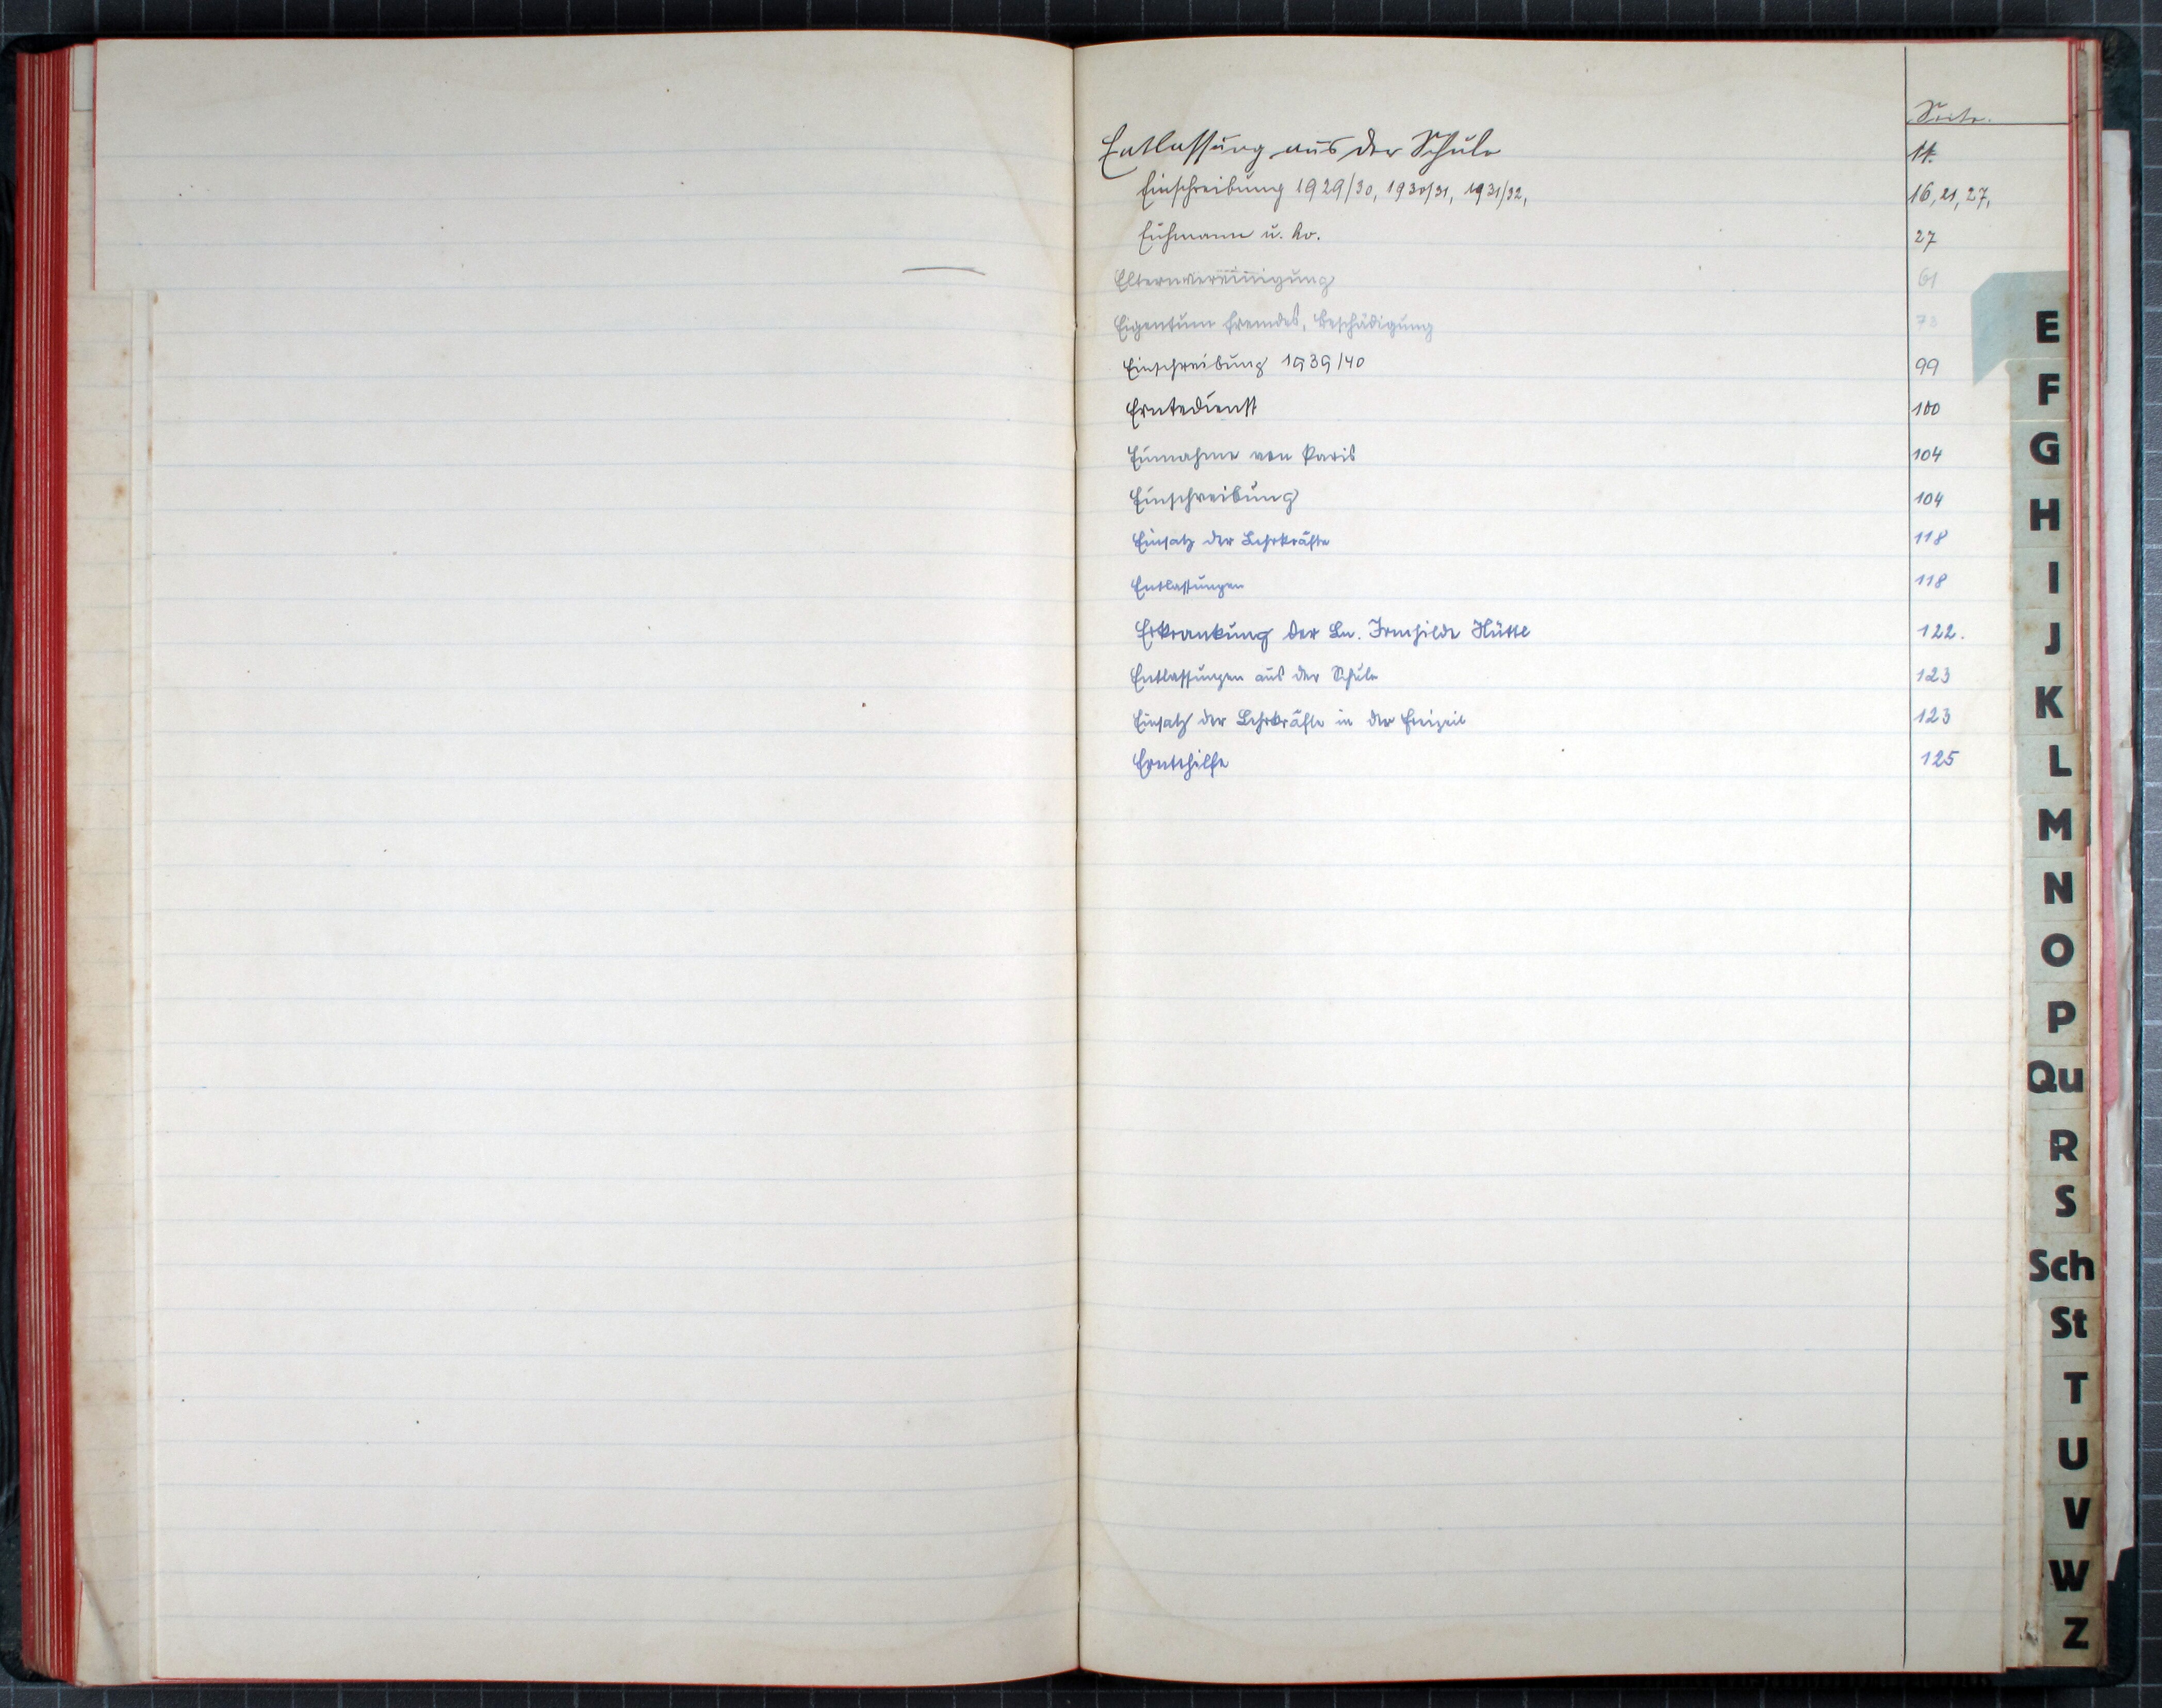 Seite.
Entlassung aus der Schule 11.
Einschreibung 1929/30, 1930/31, 1931/32, 16, 21, 27,
u. Co. 27
Elternvereinigung 61
Eigentum fremdes, Beschädigung 73
Einschreibung 1939/40 99
Erntedienst 100
Einnahme von Paris 104
Einschreibung 104
Einsatz der Lehrkräfte 118
Entlassungen 118
Erkrankung der Ln. Irmhilde Hüttl 122.
Entlassungen aus der Schule 123
Einsatz der Lehrkräfte in der Freizeit 123
Erntehilfe 125
E
F
G
H
I
J
K
L
M
N
O
P
Qu
R
S
Sch
St
T
U
V
W
Z